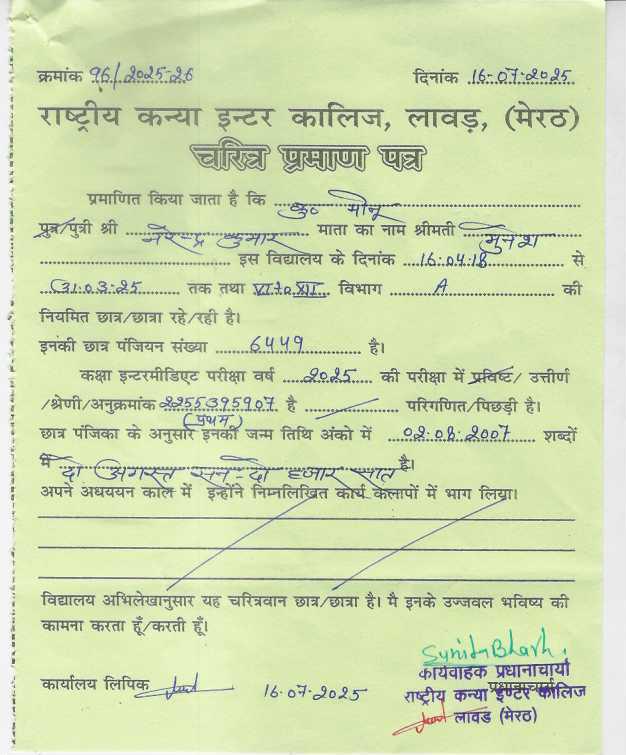 क्रमांक 96/2025-26 दिनांक 16-07-2025
राष्ट्रीय कन्या इन्टर कालिज, लावड़, (मेरठ)
चरित्र प्रमाण पत्र
प्रमाणित किया जाता है कि कु० मोनू
पुत्र/पुत्री श्री नरेन्द्र कुमार माता का नाम श्रीमती मुनेश
इस विद्यालय के दिनांक 16.04.18 से
31.03.25 तक तथा VI to XII विभाग A की
नियमित छात्र/छात्रा रहे/रही है।
इनकी छात्र पंजियन संख्या 6449 है।
कक्षा इन्टरमीडिएट परीक्षा वर्ष 2025 की परीक्षा में प्रविष्ट/ उत्तीर्ण
/श्रेणी/अनुक्रमांक 2255395907 है परिगणित/पिछड़ी है।
(प्रथम)
छात्र पंजिका के अनुसार इनकी जन्म तिथि अंको में 02.08.2007 शब्दों
में दो अगस्त सन-दो हजार सात है।
अपने अधययन काल में इन्होंने निम्नलिखित कार्य कलापों में भाग लिया।
विद्यालय अभिलेखानुसार यह चरित्रवान छात्र/छात्रा है। मै इनके उज्जवल भविष्य की
कामना करता हूँ/करती हूँ।
Sunita Bharti
कार्यवाहक प्रधानाचार्या
कार्यालय लिपिक 16.07.2025 राष्ट्रीय कन्या इण्टर कालिज
लावड (मेरठ)